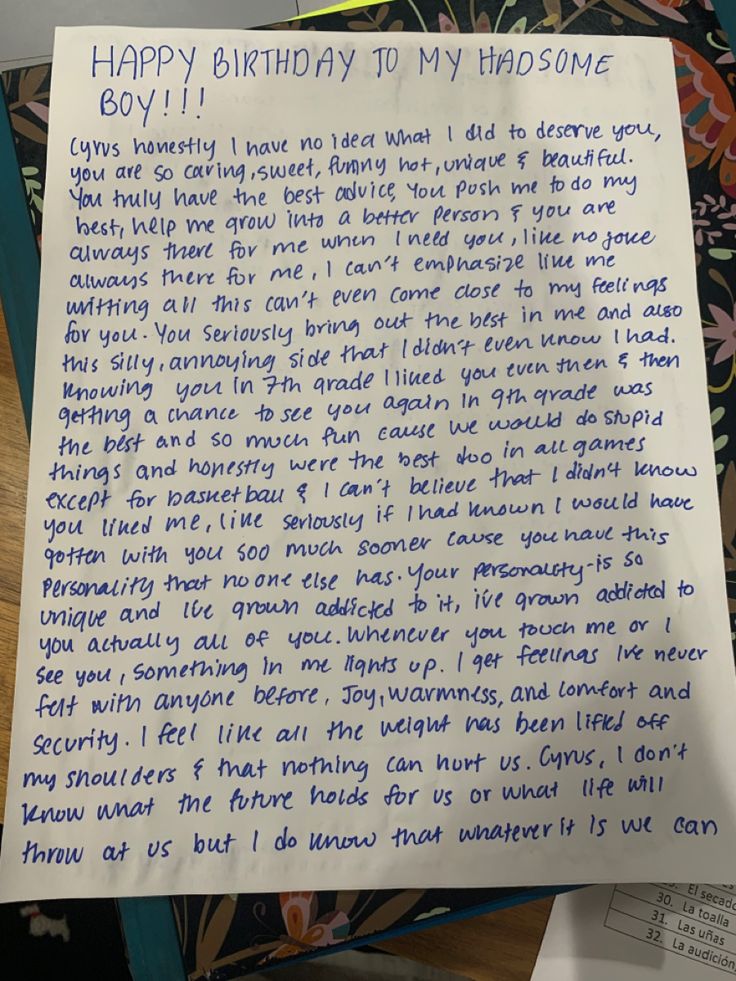 HAPPY BIRTHDAY TO MY HADSOME
BOY!!!
Cyrus honestly I have no idea what I did to deserve you,
you are so caring, sweet, funny hot, unique & beautiful.
You truly have the best advice, You push me to do my
best, help me grow into a better person & you are
always there for me when I need you, like no joke
always there for me, I can't emphasize like me
writting all this can't even come close to my feelings
for you. You seriously bring out the best in me and also
this silly, annoying side that I didn't even know I had.
Knowing you in 7th grade I liked you even then & then
getting a chance to see you again in 9th grade was
the best and so much fun cause we would do stupid
things and honestly were the best duo in all games
except for basketball & I can't believe that I didn't know
you liked me, like seriously if I had known I would have
gotten with you soo much sooner cause you have this
personality that no one else has. Your personality is so
unique and I've grown addicted to it, i've grown addicted to
you actually all of you. Whenever you touch me or I
see you, something in me lights up. I get feelings I've never
felt with anyone before, Joy, warmness, and comfort and
security. I feel like all the weight has been lifted off
my shoulders & that nothing can hurt us. Cyrus, I don't
know what the future holds for us or what life will
throw at us but I do know that whatever it is we can
El secado
30. La toalla
31. Las uñas
32. La audición,